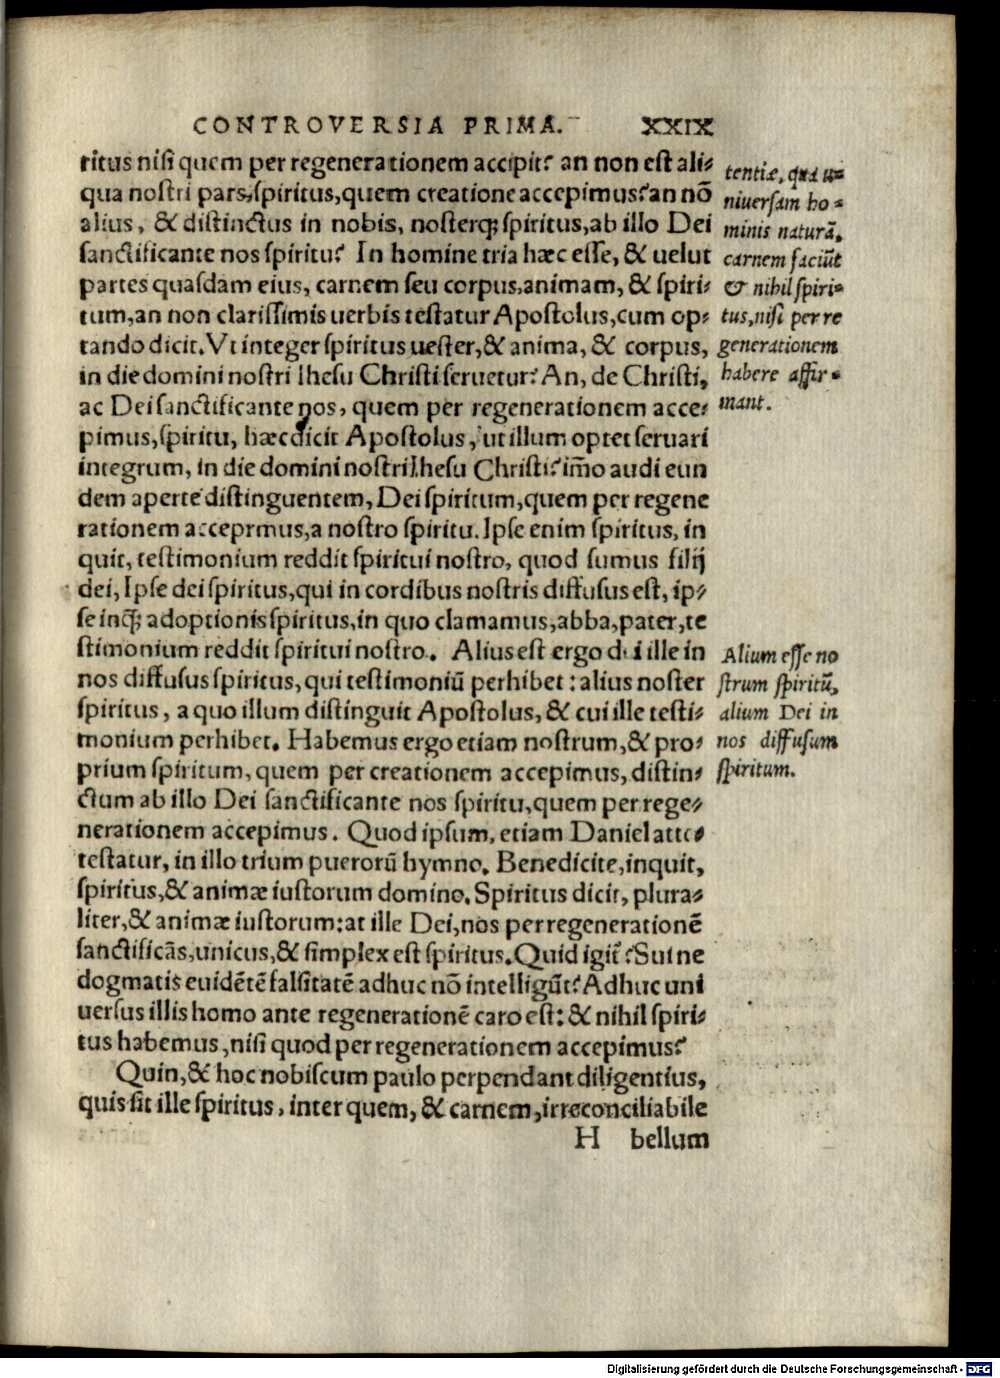 CONTROVERSIA PRIMA. XXIX
ritus nisi quem per regenerationem accipit? an non est ali-
qua nostri pars, spiritus, quem creatione accepimus? an nō
alius, & distinctus in nobis, nosterq; spiritus, ab illo Dei
sanctificante nos spiritu? In homine tria hæc esse, & uelut
partes quasdam eius, carnem seu corpus, animam, & spiri-
tum, an non clarissimis uerbis testatur Apostolus, cum op-
tando dicit. Vt integer spiritus uester, & anima, & corpus,
in die domini nostri Ihesu Christi seruetur? An, de Christi,
ac Dei sanctificante nos, quem per regenerationem acce-
pimus, spiritu, hæc dicit Apostolus, ut illum optet seruari
integrum, in die domini nostri Ihesu Christi? im̄o audi eun
dem aperte distinguentem, Dei spiritum, quem per regene
rationem acceprmus, a nostro spiritu. Ipse enim spiritus, in
quit, testimonium reddit spiritui nostro, quod sumus filij
dei, Ipse dei spiritus, qui in cordibus nostris diffusus est, ip-
se inq; adoptionis spiritus, in quo clamamus, abba, pater, te
stimonium reddit spiritui nostro. Alius est ergo dei ille in
nos diffusus spiritus, qui testimoniū perhibet : alius noster
spiritus, a quo illum distinguit Apostolus, & cui ille testi-
monium perhibet. Habemus ergo etiam nostrum, & pro-
prium spiritum, quem per creationem accepimus, distin-
ctum ab illo Dei sanctificante nos spiritu, quem per rege-
nerationem accepimus. Quod ipsum, etiam Daniel atte-
testatur, in illo trium puerorū hymno. Benedicite, inquit,
spiritus, & animæ iustorum domino. Spiritus dicit, plura-
liter, & animæ iustorum: at ille Dei, nos per regenerationē
sanctificās, unicus, & simplex est spiritus. Quid igit̄? Sui ne
dogmatis euidētē falsitatē adhuc nō intelligūt? Adhuc uni
uersus illis homo ante regenerationē caro est: & nihil spiri-
tus habemus, nisi quod per regenerationem accepimus?
Quin, & hoc nobiscum paulo perpendant diligentius,
quis sit ille spiritus, inter quem, & carnem, irreconciliabile
H bellum
tentiæ, qua u-
niuersam ho-
minis naturā,
carnem faciūt
& nihil spiri-
tus, nisi per re
generationem
habere affir-
mant.
Alium esse no
strum spiritū,
alium Dei in
nos diffusum
spiritum.
Digitalisierung gefördert durch die Deutsche Forschungsgemeinschaft - DFG